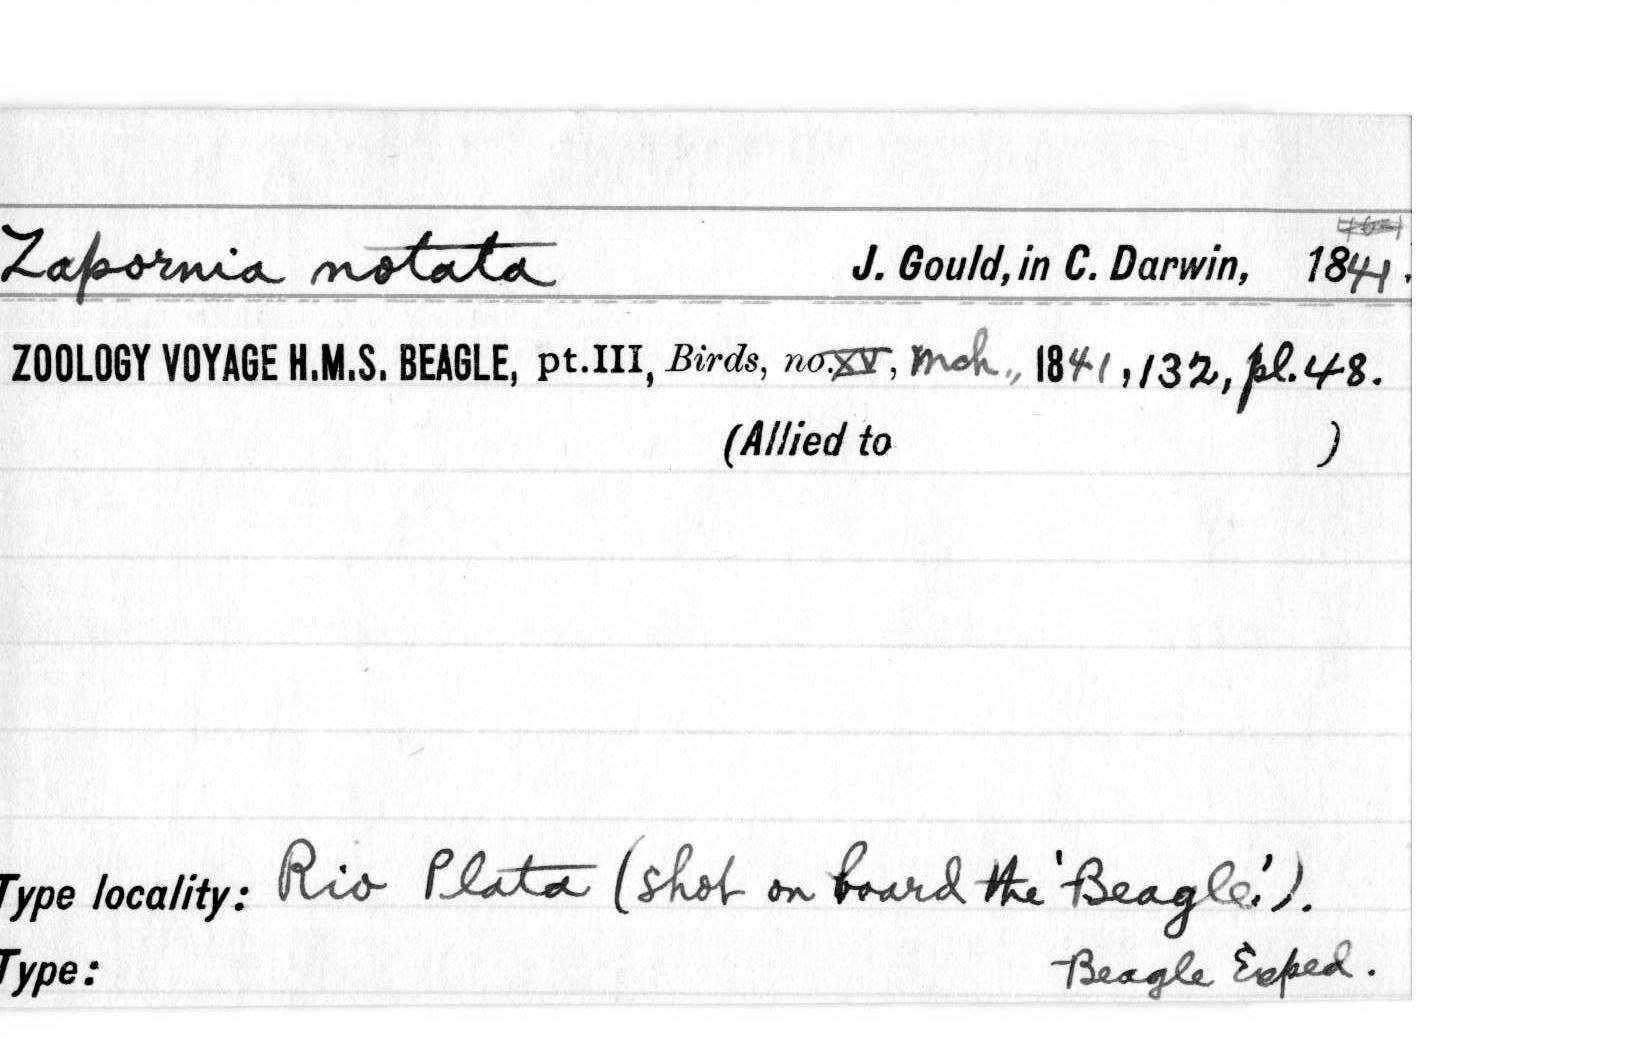 Zapornia notata J. Gould, in C. Darwin, 1841.
ZOOLOGY VOYAGE H.M.S. BEAGLE, pt.III, Birds, no.XV, Mch., 1841, 132, pl.48.
(Allied to )
Type locality: Rio Plata (shot on board the 'Beagle').
Type: Beagle Exped.